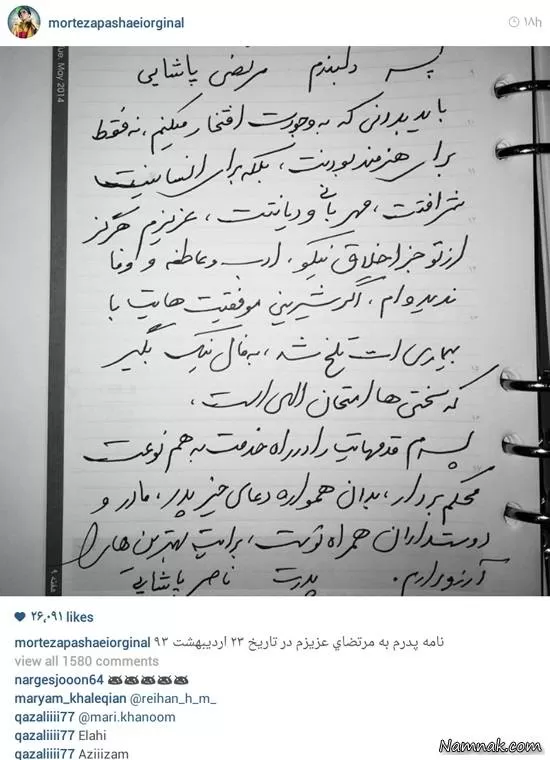 mortezapashaeiorginal
۱۸h
ue. May 2014
پسر دلبندم مرتضی پاشایی
باید بدونی که به وجودت افتخار میکنم، نه فقط
برای هنرمند بودنت، بلکه برای انسانیت
شرافتت، مهربانی و دیانتت، عزیزم هرگز
از تو جز اخلاق نیکو، ادب و عاطفه و وفا
ندیده ام، اگر شیرینی موفقیت هایت با
بیماری ات تلخ شد، به فال نیک بگیر
که سختی ها امتحان الهی است.
پسرم قدمهایت را در راه خدمت به هم نوعت
محکم بردار، بدان همواره دعای خیر پدر، مادر و
دوستداران همراه توست، برایت بهترین ها را
آرزو دارم. پدرت ناصر پاشایی
هفته ۹
۲۶,۰۹۱ likes
mortezapashaeiorginal نامه پدرم به مرتضاي عزیزم در تاریخ ۲۳ اردیبهشت ۹۳
view all 1580 comments
nargesjooon64
maryam_khaleqian @reihan_h_m_
qazaliiii77 @mari.khanoom
qazaliiii77 Elahi
qazaliiii77 Aziiizam
Namnak.com